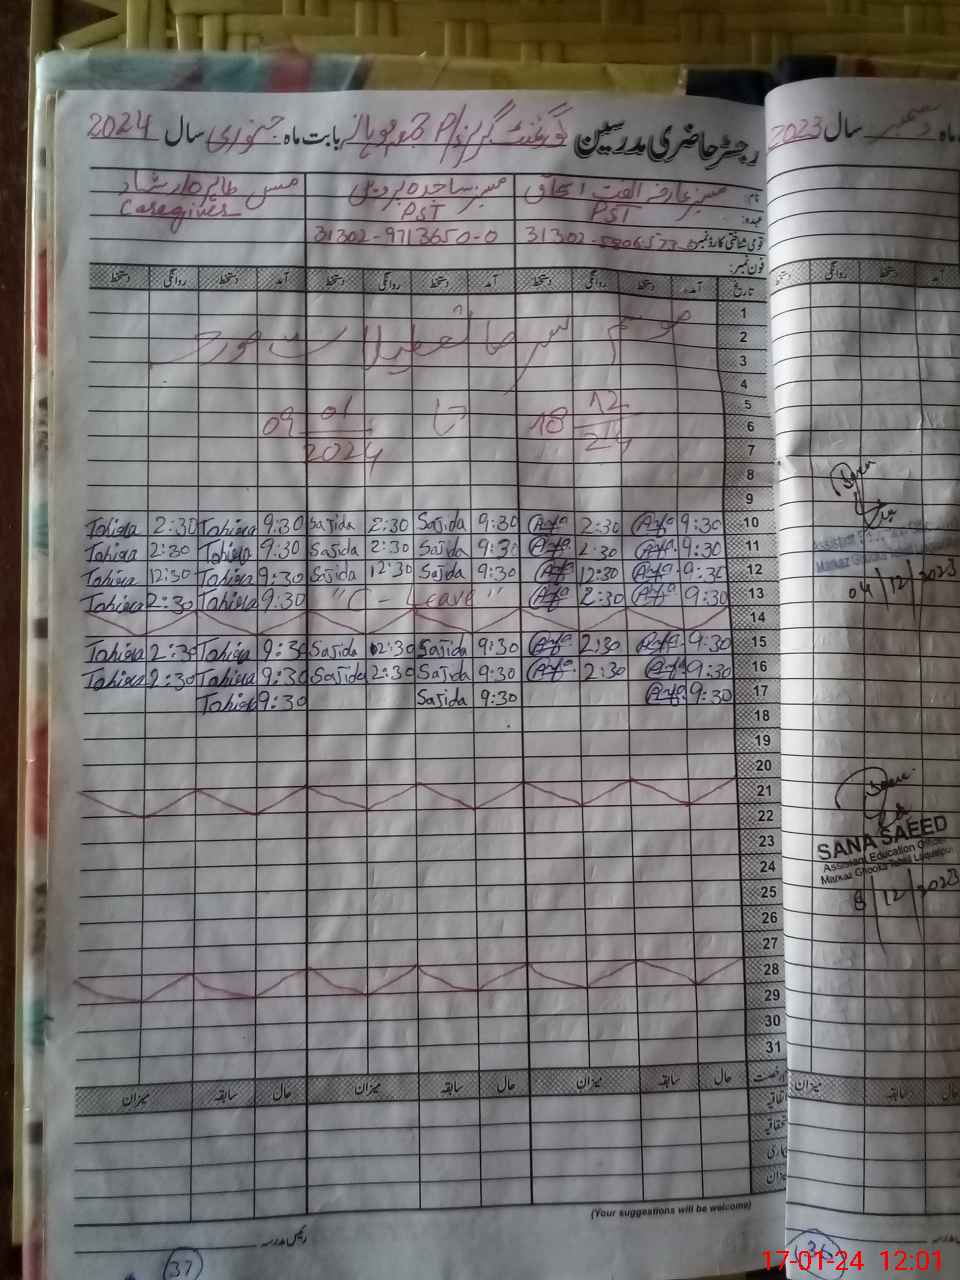 رجسٹر حاضری مدرسین گورنمنٹ گرلز P/S بابت ماہ جنوری سال 2024
نام: مسز عارفہ الفت اسحاق مسز ساجدہ پروین مس طاہرہ ارشاد
عہدہ: PST PST Caregiver
قومی شناختی کارڈ نمبر 31302- 31302-9713650-0
فون نمبر:
تاریخ آمد دستخط روانگی دستخط آمد دستخط روانگی دستخط آمد دستخط روانگی دستخط
1
موسم سرما تعطیلات مورخہ
2
3
4
5
18 12 24 تا 09 01 2024
6
7
8
9
Tahira 2:30 Tahira 9:30 Sajida 2:30 Sajida 9:30 2:30 9:30 10
Tahira 2:30 Tahira 9:30 Sajida 2:30 Sajida 9:30 2:30 9:30 11
Tahira 12:30 Tahira 9:30 Sajida 12:30 Sajida 9:30 12:30 9:30 12
Tahira 2:30 Tahira 9:30 "C - Leave" 2:30 9:30 13
14
Tahira 2:30 Tahira 9:30 Sajida 2:30 Sajida 9:30 2:30 9:30 15
Tahira 2:30 Tahira 9:30 Sajida 2:30 Sajida 9:30 2:30 9:30 16
Tahira 9:30 Sajida 9:30 9:30 17
18
19
20
21
22
23
24
25
26
27
28
29
30
31
رخصت حال سابقہ میزان حال سابقہ میزان حال سابقہ میزان
اتفاقیہ
میزان
(Your suggestions will be welcome)
رئیس مدرسہ
37
ماہ دسمبر سال 2023
آمد دستخط روانگی دستخط
04/12/2023
SANA SAEED
Assistant Education Officer
8/12/2023
حال سابقہ میزان
رئیس مدرسہ
36
17-01-24 12:01